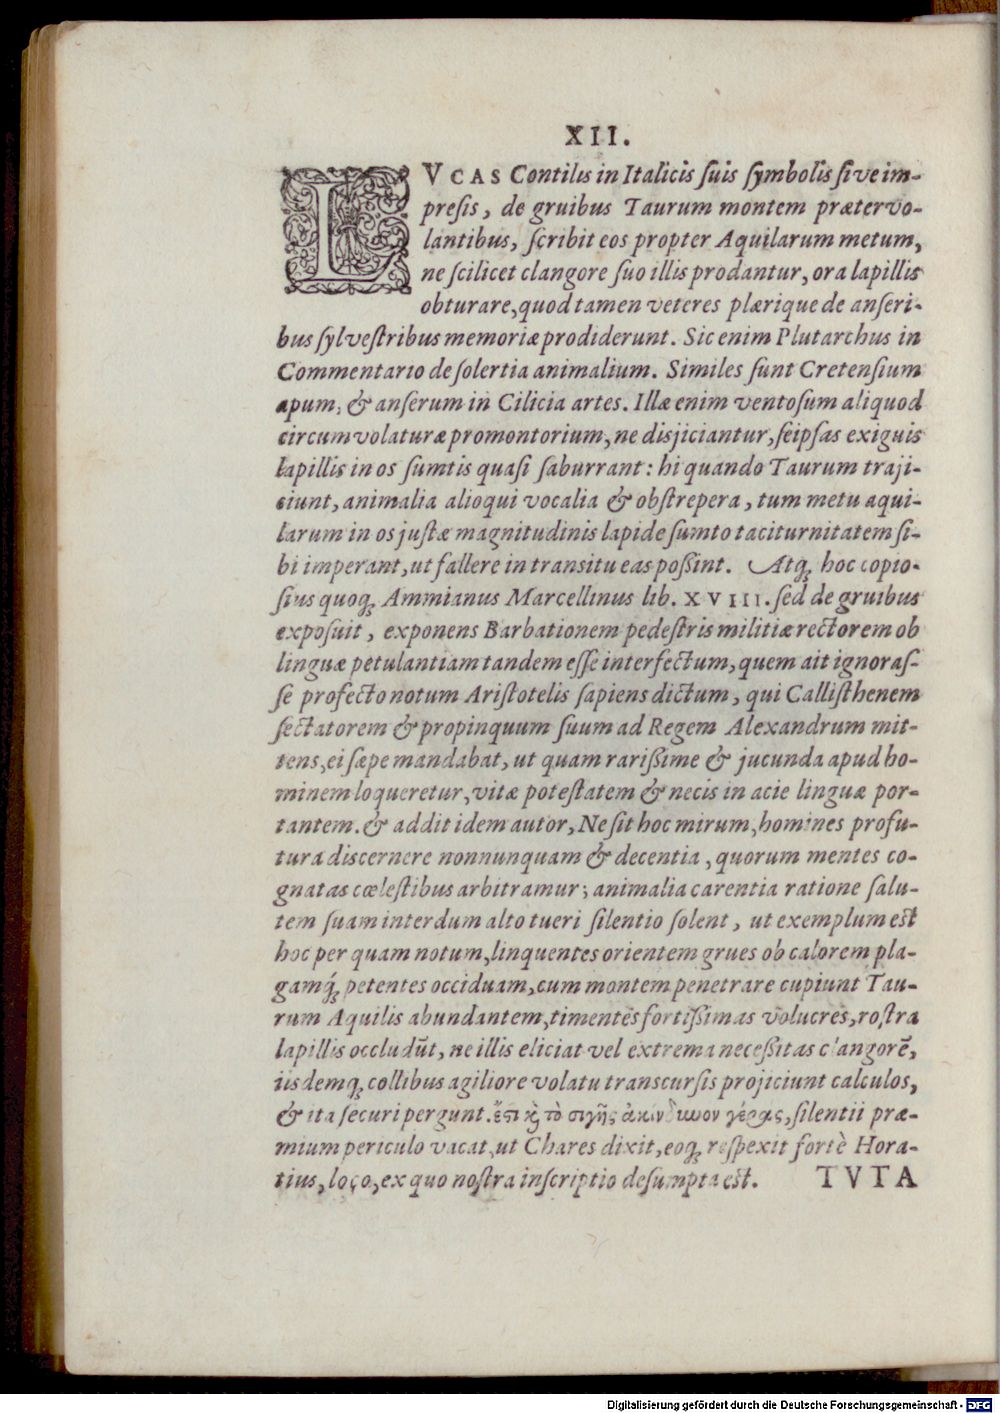 XII.
LVCAS Contilis in Italicis suis symbolis sive im-
presis, de gruibus Taurum montem prætervo-
lantibus, scribit eos propter Aquilarum metum,
ne scilicet clangore suo illis prodantur, ora lapillis
obturare, quod tamen veteres plærique de anseri-
bus sylvestribus memoriæ prodiderunt. Sic enim Plutarchus in
Commentario de solertia animalium. Similes sunt Cretensium
apum, & anserum in Cilicia artes. Illæ enim ventosum aliquod
circumvolaturæ promontorium, ne disjiciantur, seipsas exiguis
lapillis in os sumtis quasi saburrant: hi quando Taurum traji-
ciunt, animalia alioqui vocalia & obstrepera, tum metu aqui-
larum in os justæ magnitudinis lapide sumto taciturnitatem si-
bi imperant, ut fallere in transitu eas possint. Atq; hoc copio-
sius quoq; Ammianus Marcellinus lib. XVIII. sed de gruibus
exposuit, exponens Barbationem pedestris militiæ rectorem ob
linguæ petulantiam tandem esse interfectum, quem ait ignoras-
se profecto notum Aristotelis sapiens dictum, qui Callisthenem
sectatorem & propinquum suum ad Regem Alexandrum mit-
tens, ei sæpe mandabat, ut quam rarissime & jucunda apud ho-
minem loqueretur, vitæ potestatem & necis in acie linguæ por-
tantem. & addit idem autor, Ne sit hoc mirum, homines profu-
tura discernere nonnunquam & decentia, quorum mentes co-
gnatas cœlestibus arbitramur; animalia carentia ratione salu-
tem suam interdum alto tueri silentio solent, ut exemplum est
hoc per quam notum, linquentes orientem grues ob calorem pla-
gamq́; petentes occiduam, cum montem penetrare cupiunt Tau-
rum Aquilis abundantem, timentes fortissimas volucres, rostra
lapillis occludūt, ne illis eliciat vel extrema necessitas clangorē,
iisdemq; collibus agiliore volatu transcursis projiciunt calculos,
& ita securi pergunt. ἔστι ϗ τὸ σιγῆς ἀκινδυνον γέρας, silentii præ-
mium periculo vacat, ut Chares dixit, eoq; respexit fortè Hora-
tius, loco, ex quo nostra inscriptio desumpta est. TVTA
Digitalisierung gefördert durch die Deutsche Forschungsgemeinschaft - DFG